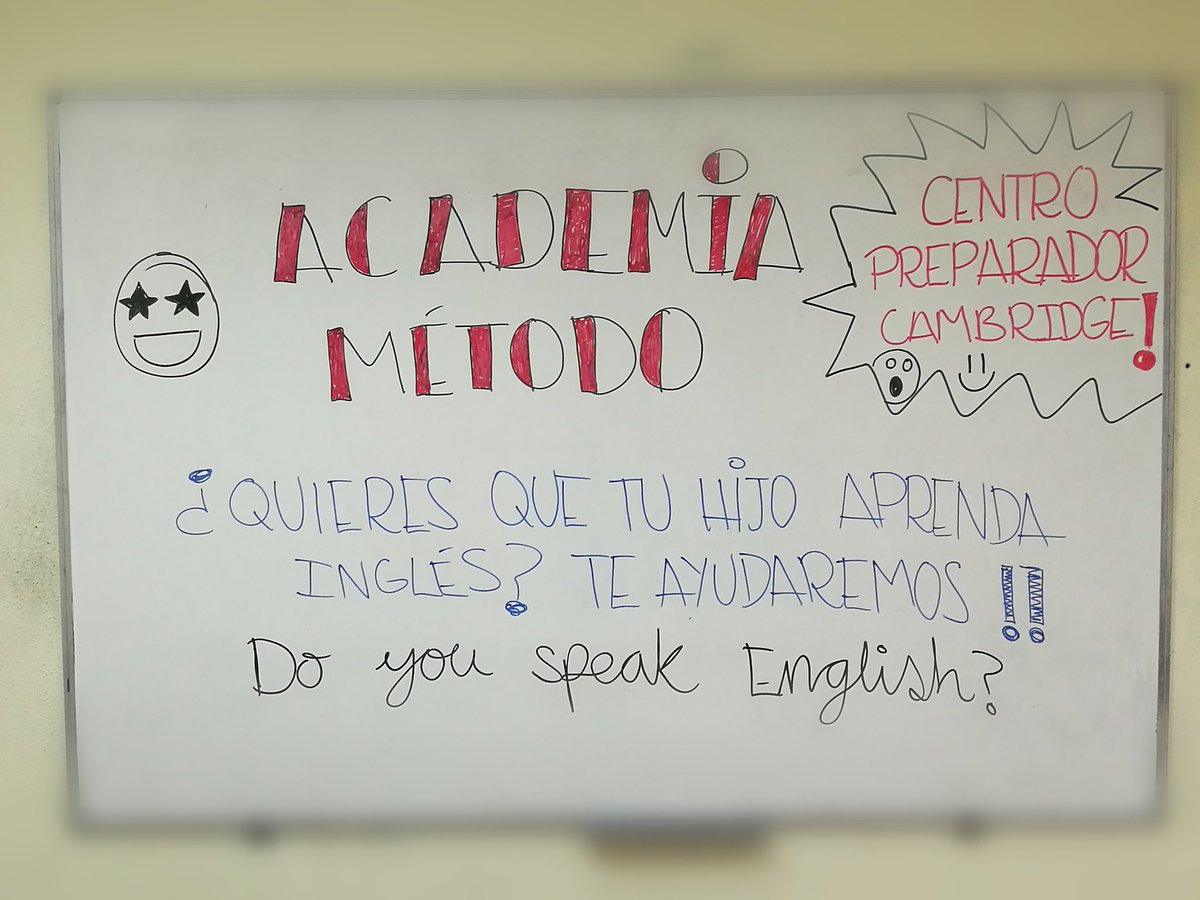 ACADEMIA
MÉTODO
CENTRO
PREPARADOR
CAMBRIDGE!
¿QUIERES QUE TU HIJO APRENDA
INGLÉS? TE AYUDAREMOS!!
Do you speak English?